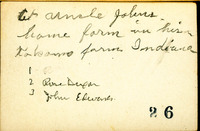 at uncle Johns
home farm in
farm Indiana
1
2 Rose Dugan
3 John Edwards
26